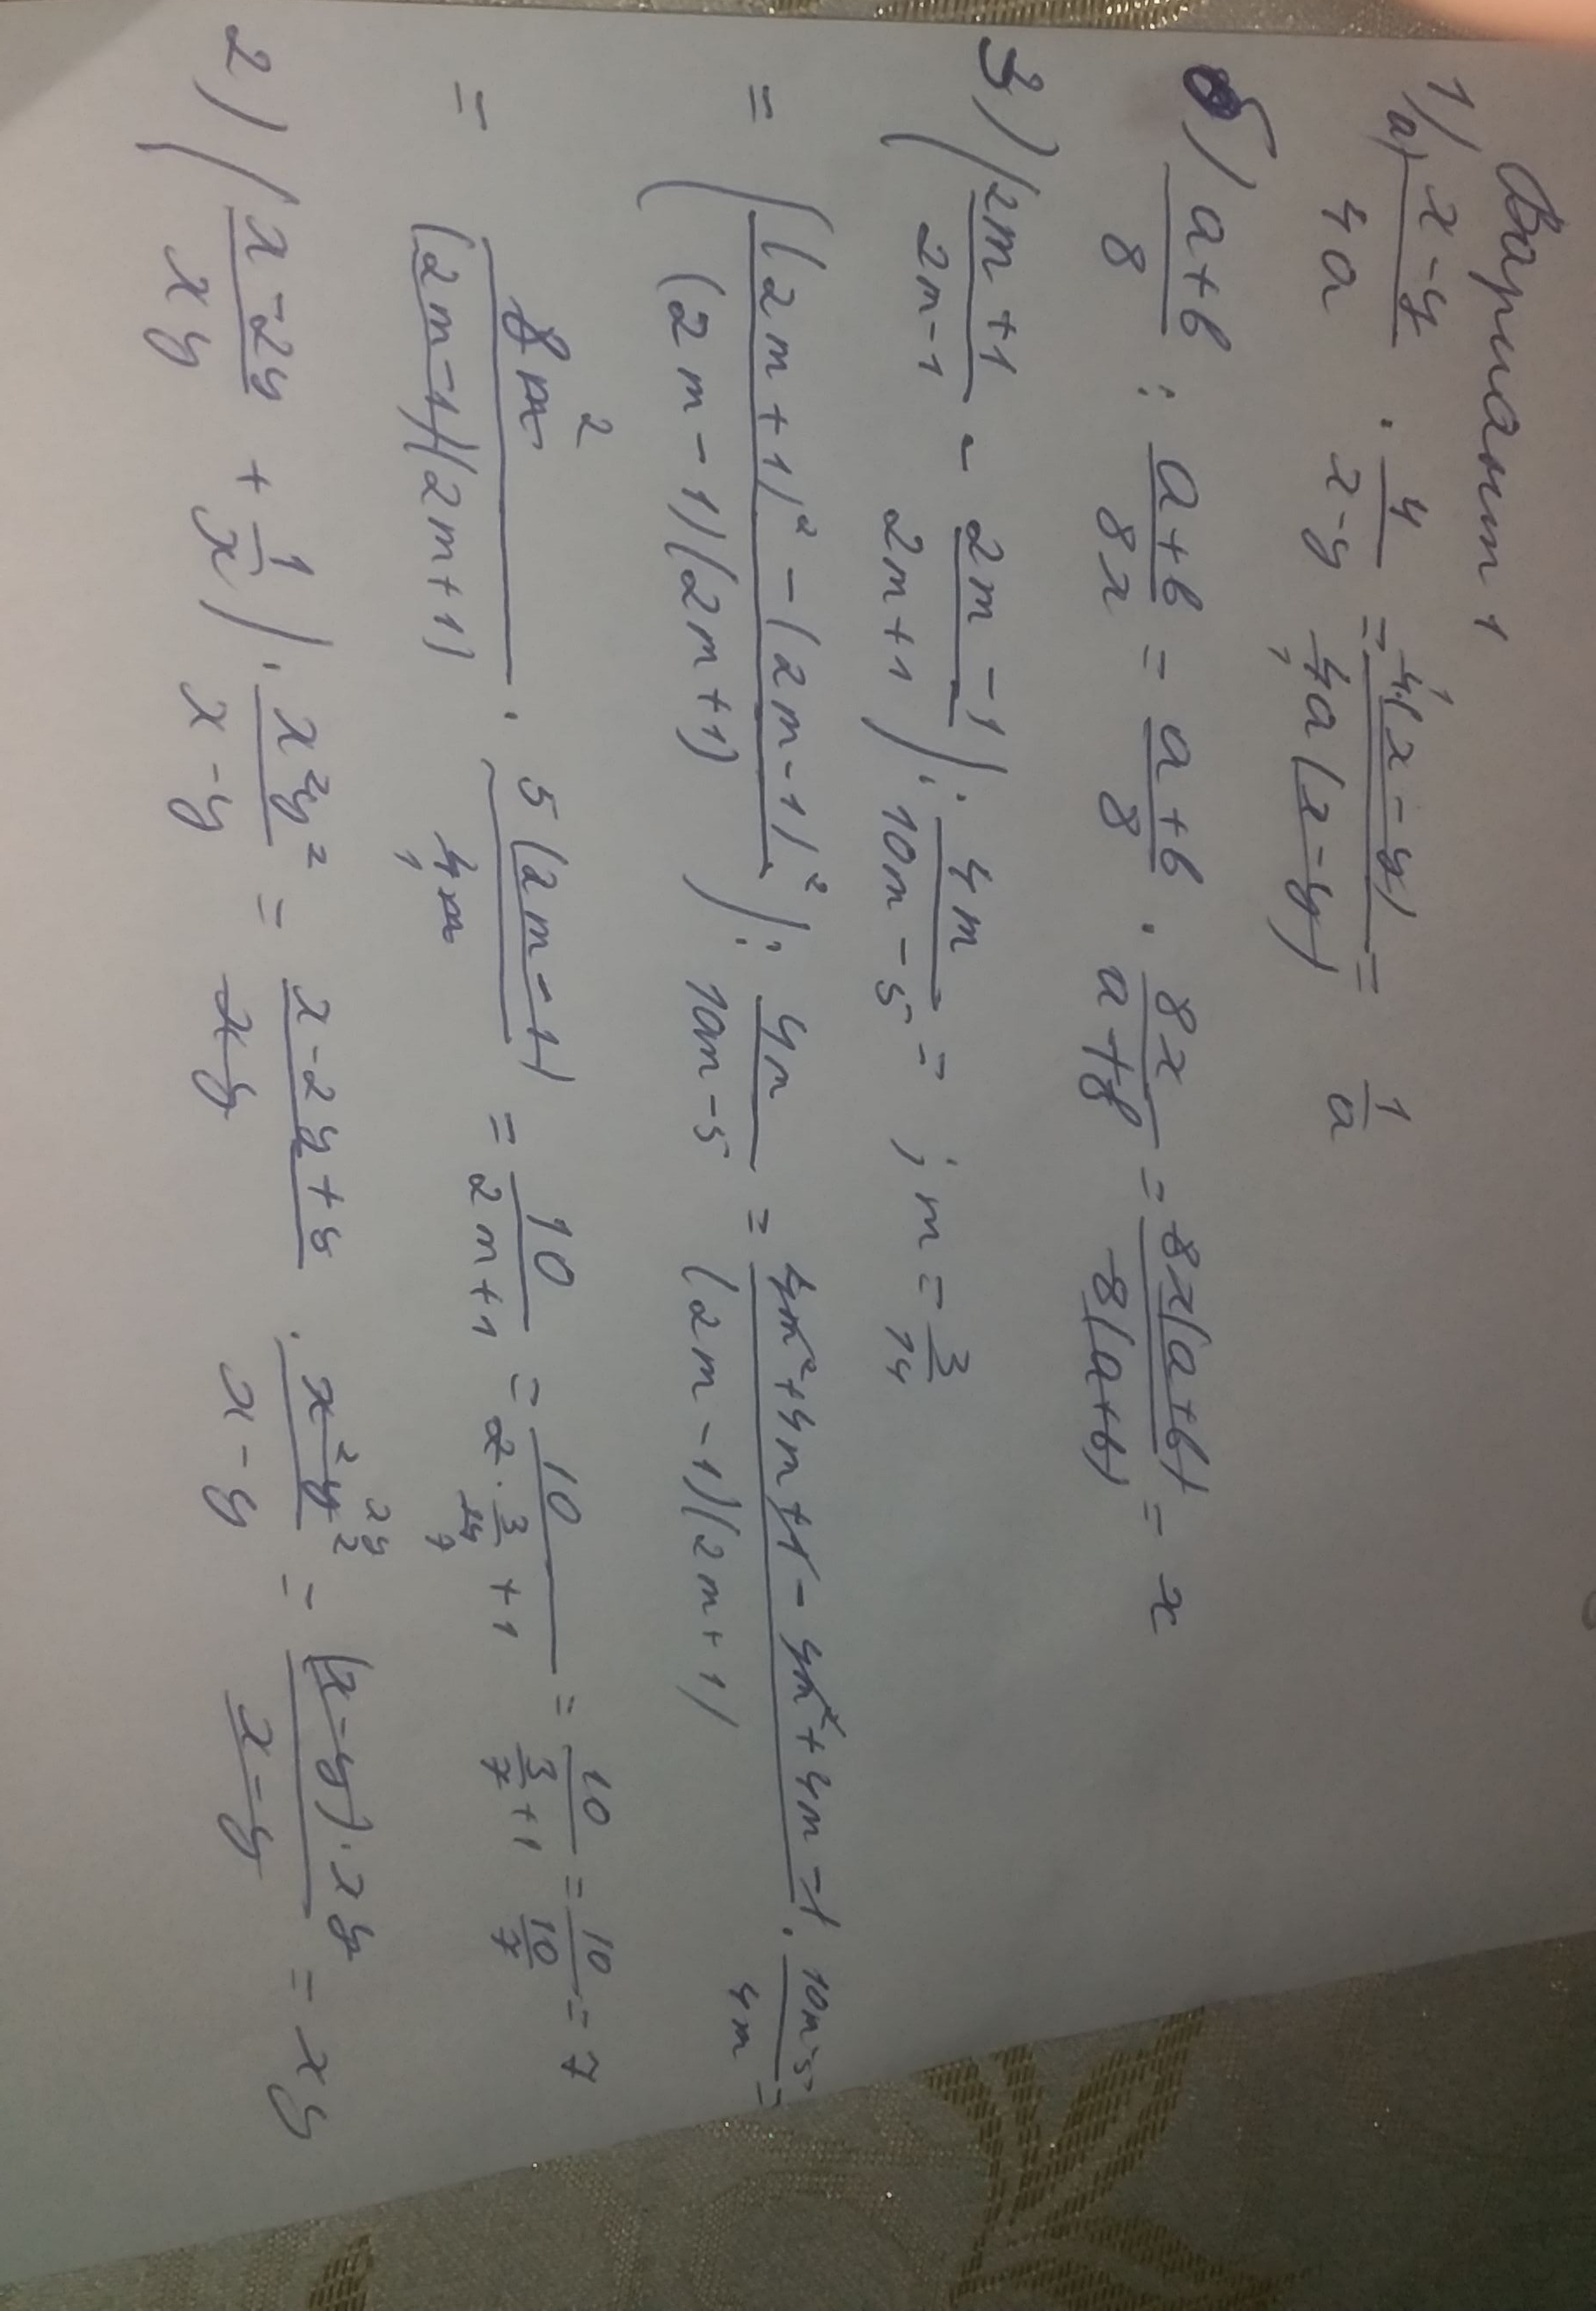 Вариант 1
1) а) (x-y)/(4a) · 4/(x-y) = (4(x-y))/(4a(x-y)) = 1/a
б) (a+b)/8 : (a+b)/(8x) = (a+b)/8 · (8x)/(a+b) = (8x(a+b))/(8(a+b)) = x
3) ((2m+1)/(2m-1) - (2m-1)/(2m+1)) : (4m)/(10m-5) = ; m = 3/14
= (((2m+1)² - (2m-1)²)/((2m-1)(2m+1))) : (4m)/(10m-5) = (4m²+4m+1-4m²+4m-1)/((2m-1)(2m+1)) · (10m-5)/(4m) =
= (8m)/((2m-1)(2m+1)) · (5(2m-1))/(4m) = 10/(2m+1) = 10/(2·3/14+1) = 10/(3/7+1) = 10/(10/7) = 7
2) ((x-2y)/(xy) + 1/x) · (x²y²)/(x-y) = (x-2y+y)/(xy) · (x²y²)/(x-y) = ((x-y)·xy)/(x-y) = xy